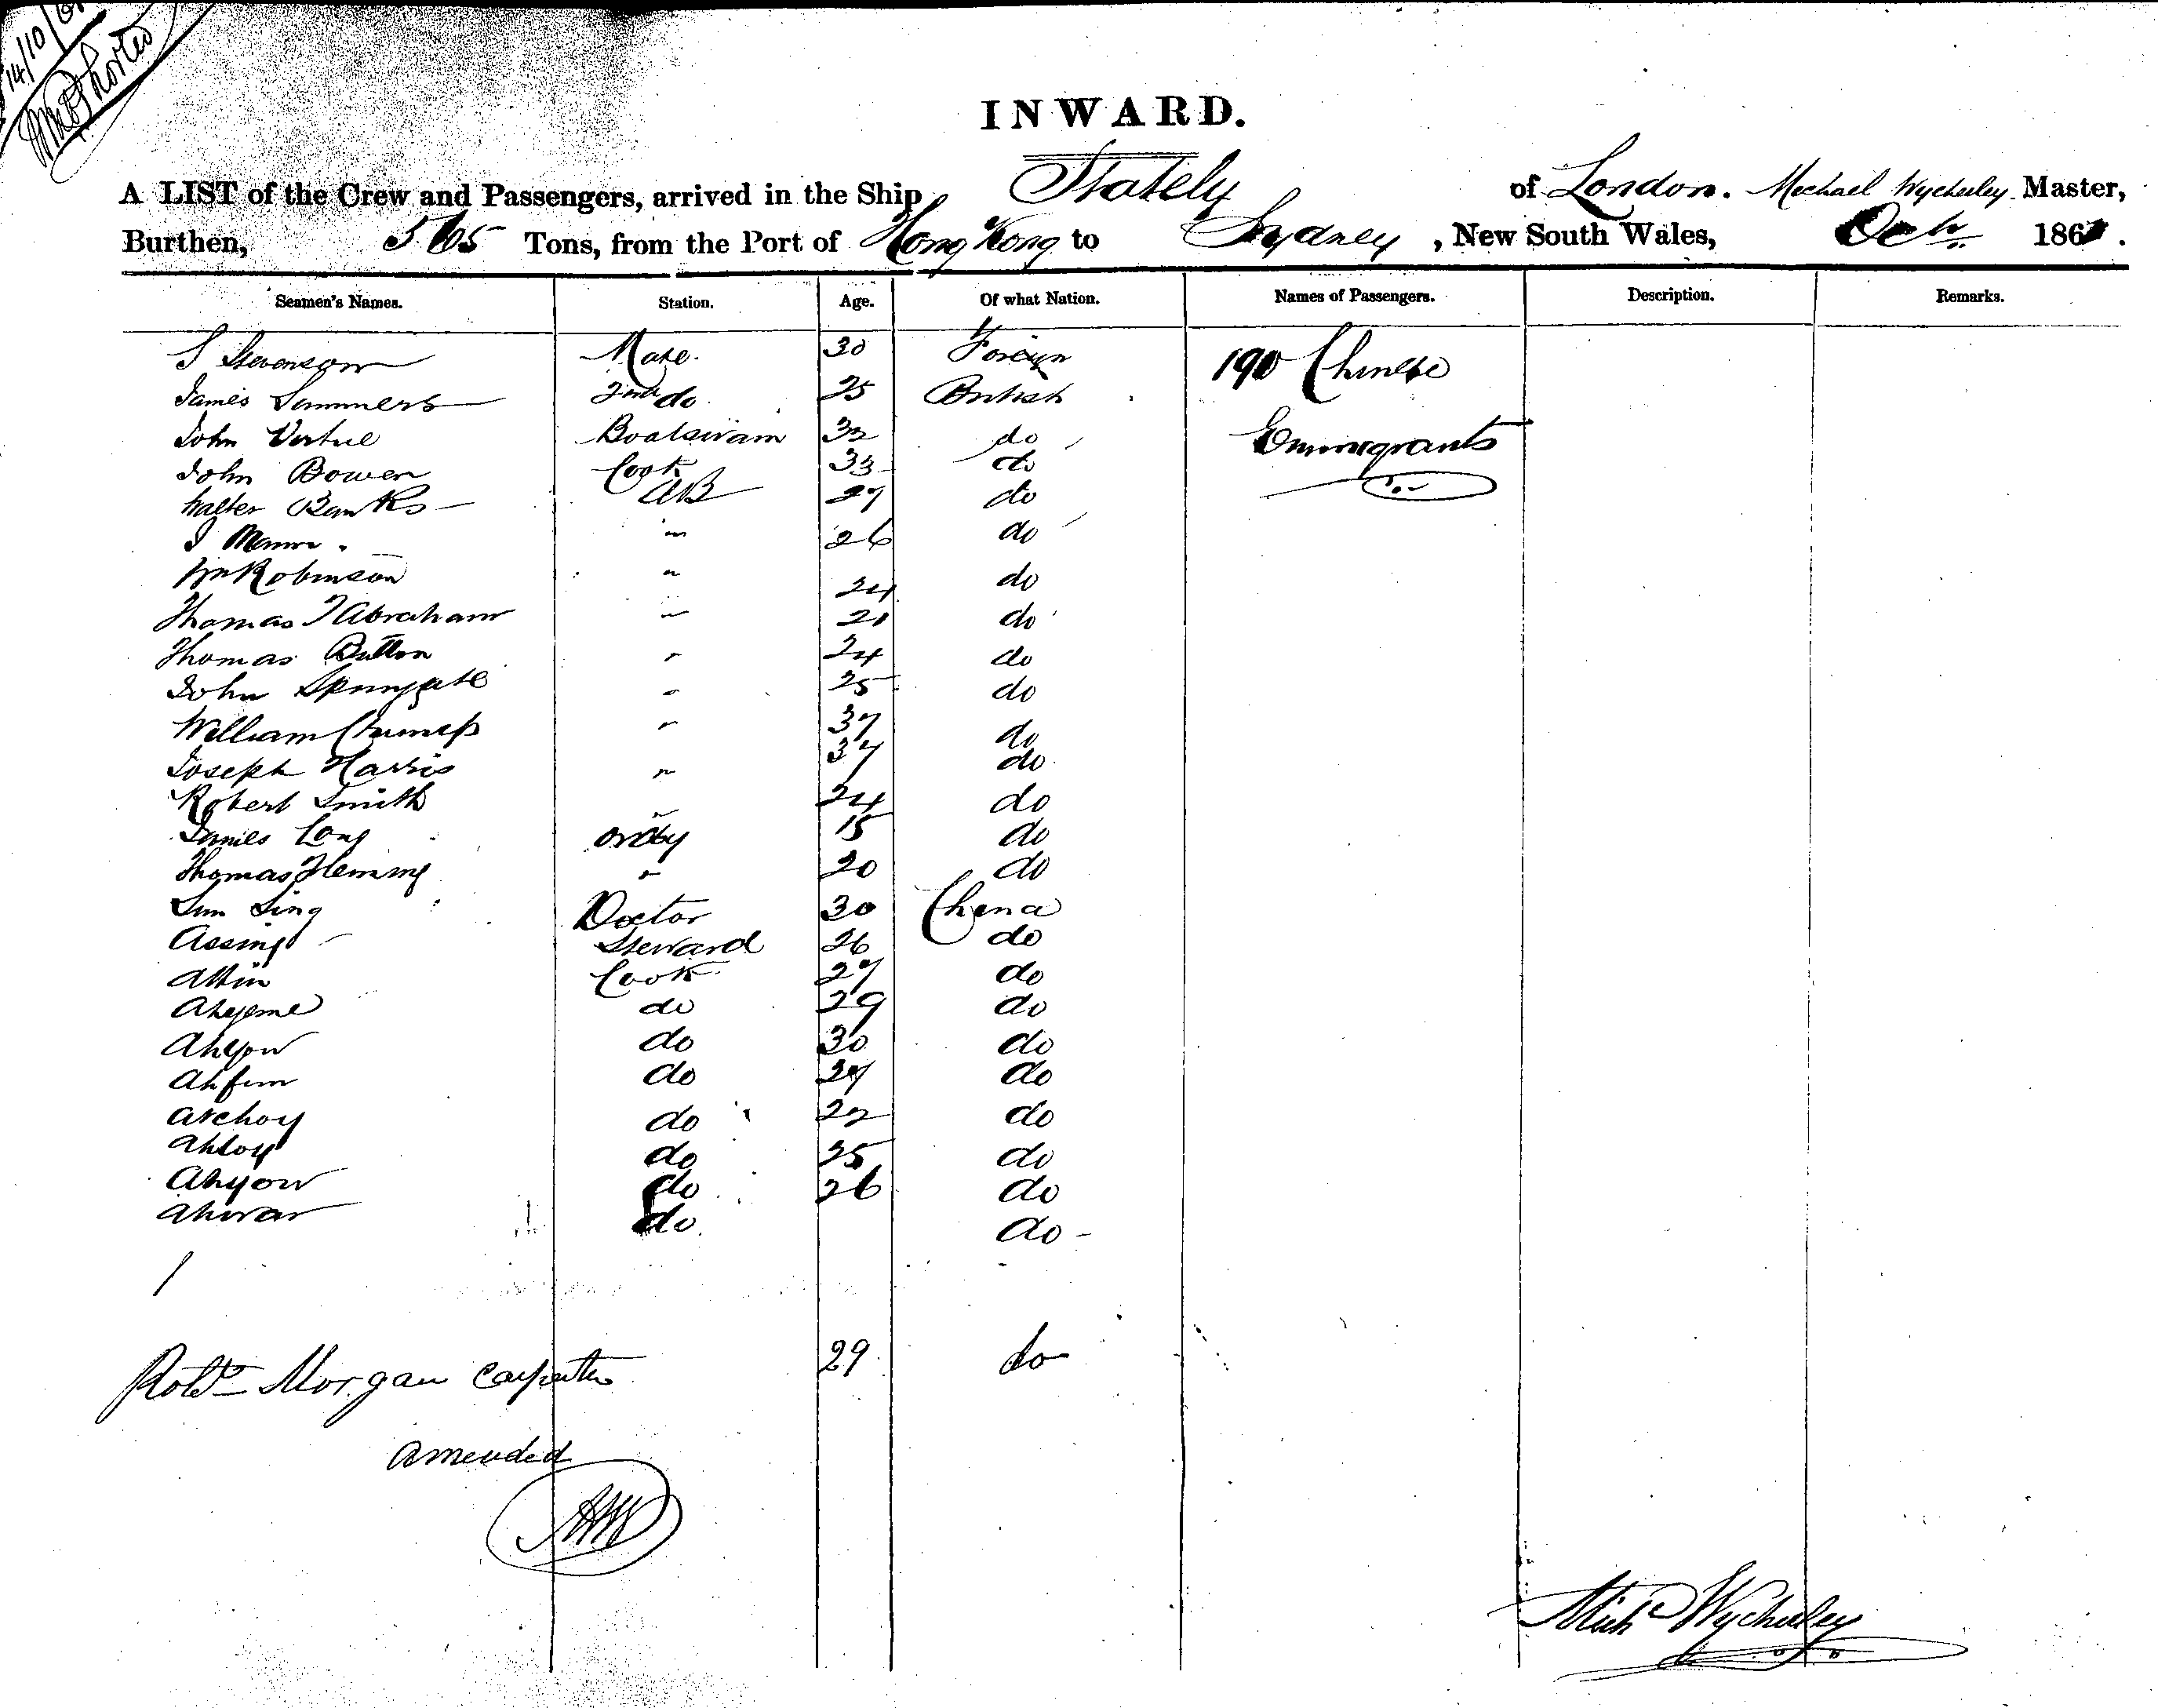 14/10/61
INWARD.
A LIST of the Crew and Passengers, arrived in the Ship Stately of London. Michael Wycherley Master,
Burthen, 565 Tons, from the Port of Hong Kong to Sydney, New South Wales, Oct. 1861.
Seamen's Names. Station. Age. Of what Nation. Names of Passengers. Description. Remarks.
J Stevenson Mate. 30 Foreign 190 Chinese
James Summers 2nd do 25 British
John Vertue Boatswain 32 do Emmegrants
John Bowen Cook 33 do
Walter Banks AB 27 do
J Mann " 26 do
Wm Robinson " 24 do
Thomas J Abraham " 21 do
Thomas Button " 24 do
John Spungate " 25 do
William Crump " 37 do
Joseph Harris " 37 do
Robert Smith " 24 do
James Long ordy 15 do
Thomas Fleming " 20 do
Sun Sing Doctor 30 China
Assing Steward 26 do
Cook 27 do
do 29 do
Ahyow do 30 do
Ahfun do 27 do
Atchoy do 22 do
Ahloy do 25 do
Ahyow do 26 do
Ahwar do do
Robt Morgan Carpenter 29 do
Amended
Michl Wycherley